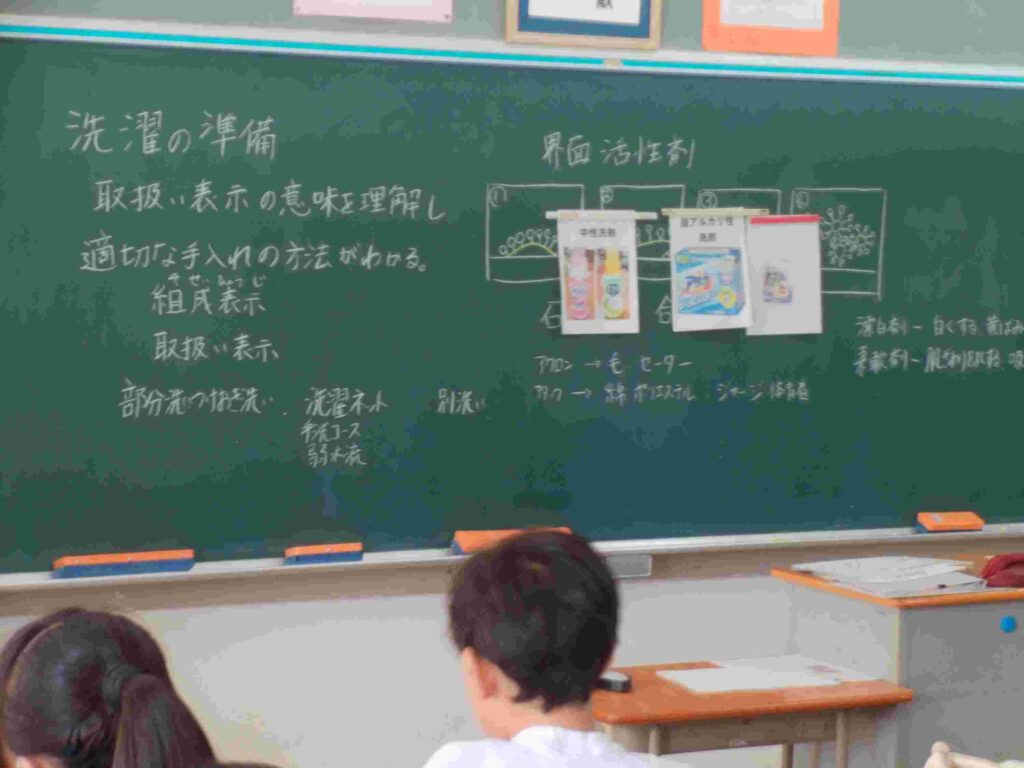 洗濯の準備
取扱い表示の意味を理解し
適切な手入れの方法がわかる。
そせいひょうじ
組成表示
取扱い表示
部分洗い つけおき洗い 洗濯ネット 別洗い
手洗コース
弱水流
界面活性剤
①
中性洗剤
弱アルカリ性
洗剤
アクロン → 毛 セーター
アタック → 綿 ポリエステル
漂白剤 — 白くする
柔軟剤 —